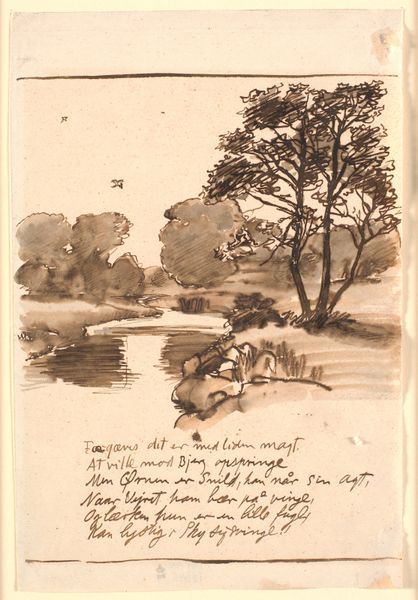 Forgæves det er med liden magt
At ville mod Bjerg opspringe
Men Ørnen er Snild, han når sin agt,
Naar Vejret ham bær på vinge,
Og lærken hun er en lille fugl,
Kan lystig i Sky sig svinge.